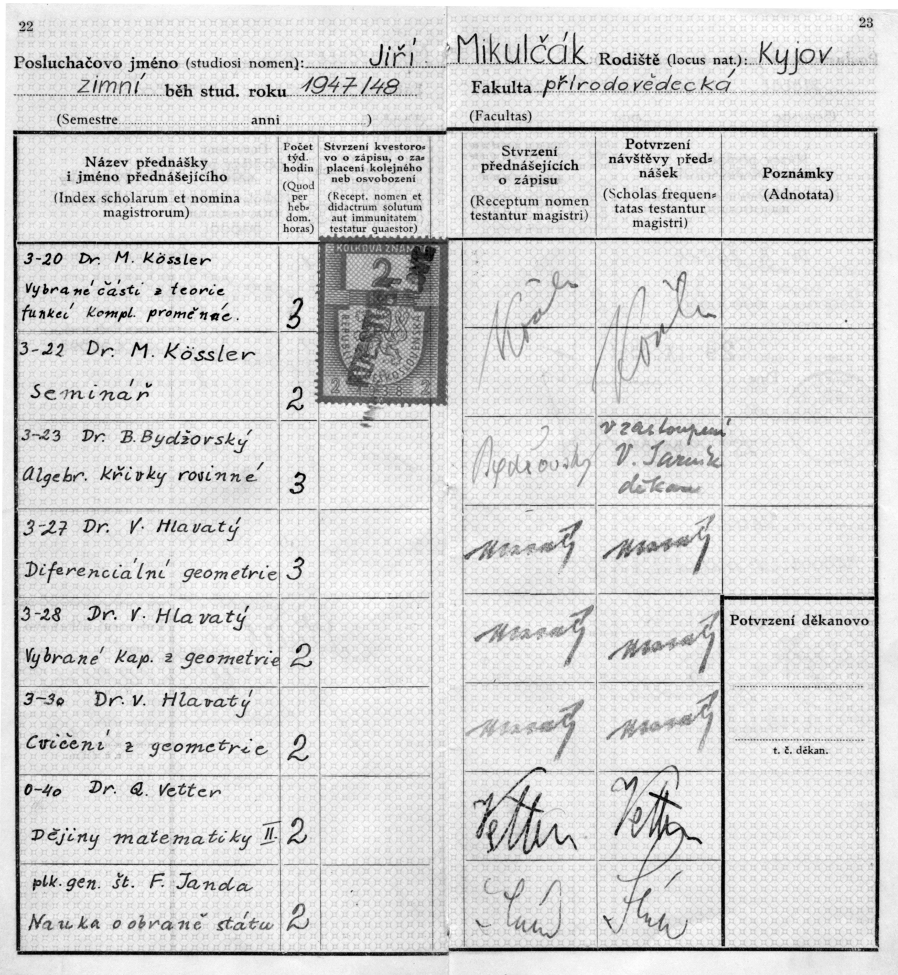 22
23
Posluchačovo jméno (studiosi nomen): Jiří Mikulčák Rodiště (locus nat.): Kyjov
zimní běh stud. roku 1947/48 Fakulta přírodovědecká
(Semestre anni ) (Facultas)
Název přednášky
i jméno přednášejícího
(Index scholarum et nomina
magistrorum)
Počet
týd.
hodin
(Quod
per
heb=
dom.
horas)
Stvrzení kvestoro=
vo o zápisu, o za=
placení kolejného
neb osvobození
(Recept. nomen et
didactrum solutum
aut immunitatem
testatur quaestor)
Stvrzení
přednášejících
o zápisu
(Receptum nomen
testantur magistri)
Potvrzení
návštěvy před=
nášek
(Scholas frequen=
tatas testantur
magistri)
Poznámky
(Adnotata)
3-20 Dr. M. Kössler
Vybrané části z teorie
funkcí kompl. proměnné.
3
KOLKOVÁ ZNÁMKA
2
REPUBLIKA ČESKOSLOVENSKÁ
2 2
3-22 Dr. M. Kössler
Seminář
2
3-23 Dr. B. Bydžovský
Algebr. křivky rovinné
3
Bydžovský
v zastoupení
V. Jarník
děkan
3-27 Dr. V. Hlavatý
Diferenciální geometrie 3
Hlavatý Hlavatý
3-28 Dr. V. Hlavatý
Vybrané kap. z geometrie 2
Hlavatý Hlavatý
Potvrzení děkanovo
t. č. děkan.
3-30 Dr. V. Hlavatý
Cvičení z geometrie 2
Hlavatý Hlavatý
0-40 Dr. Q. Vetter
Dějiny matematiky II. 2
Vetter Vetter
plk. gen. št. F. Janda
Nauka o obraně státu 2